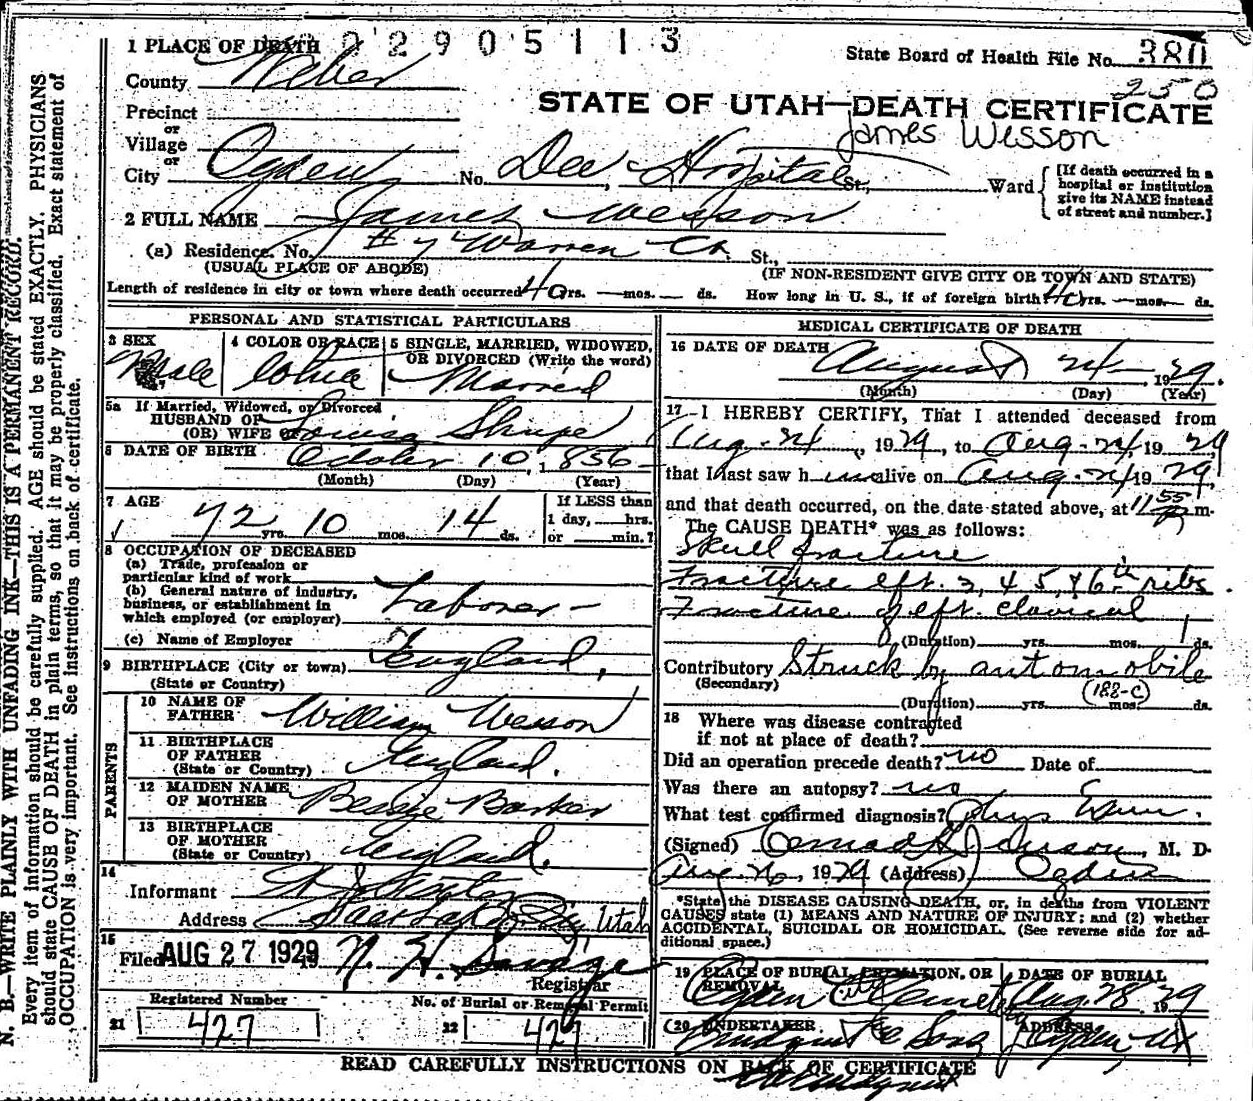 1 PLACE OF DEATH 2 2 9 0 5 1 1 3
State Board of Health File No. 380
County Weber
250
STATE OF UTAH—DEATH CERTIFICATE
Precinct
James Wesson
or
Village
or
City Ogden No. Dee Hospital St., Ward
[If death occurred in a
hospital or institution
give its NAME instead
of street and number.]
2 FULL NAME James Wesson
(a) Residence. No. #7 Warren Ct. St.,
(USUAL PLACE OF ABODE) (IF NON-RESIDENT GIVE CITY OR TOWN AND STATE)
Length of residence in city or town where death occurred 40 yrs. — mos. — ds. How long in U. S., if of foreign birth? 40 yrs. — mos. — ds.
PERSONAL AND STATISTICAL PARTICULARS
3 SEX Male
4 COLOR OR RACE White
5 SINGLE, MARRIED, WIDOWED,
OR DIVORCED (Write the word)
Married
5a If Married, Widowed, or Divorced
HUSBAND OF
(OR) WIFE OF Louisa Shupe
6 DATE OF BIRTH October 10, 1856
(Month) (Day) (Year)
7 AGE
72 yrs. 10 mos. 14 ds.
If LESS than
1 day, hrs.
or min.?
8 OCCUPATION OF DECEASED
(a) Trade, profession or
particular kind of work
(b) General nature of industry,
business, or establishment in
which employed (or employer) Laborer —
(c) Name of Employer
9 BIRTHPLACE (City or town) England,
(State or Country)
PARENTS
10 NAME OF
FATHER William Wesson
11 BIRTHPLACE
OF FATHER England.
(State or Country)
12 MAIDEN NAME
OF MOTHER Bessie Barker
13 BIRTHPLACE
OF MOTHER England.
(State or Country)
14
Informant
Address Salt Lake City, Utah
15
Filed AUG 27 1929 19 N. H. Savage
Registrar
Registered Number No. of Burial or Removal Permit
21 427 22 427
MEDICAL CERTIFICATE OF DEATH
16 DATE OF DEATH
August 24 — 1929.
(Month) (Day) (Year)
17 I HEREBY CERTIFY, That I attended deceased from
Aug. 24, 1929, to Aug. 24, 1929,
that I last saw him alive on Aug. 24 1929,
and that death occurred, on the date stated above, at 11 55 m.
The CAUSE DEATH* was as follows:
Skull fracture
Fracture left. 3, 4 5, & 6th ribs.
Fracture left clavical
(Duration) yrs. mos. 1 ds.
Contributory Struck by automobile
(Secondary) (188-C)
(Duration) yrs. mos. ds.
18 Where was disease contracted
if not at place of death?
Did an operation precede death? no Date of
Was there an autopsy? no
What test confirmed diagnosis? Phys Exam.
(Signed) Conrad H Jenson, M. D.
Aug. 26, 1929 (Address) Ogden
*State the DISEASE CAUSING DEATH, or, in deaths from VIOLENT
CAUSES state (1) MEANS AND NATURE OF INJURY; and (2) whether
ACCIDENTAL, SUICIDAL OR HOMICIDAL. (See reverse side for ad-
ditional space.)
19 PLACE OF BURIAL, CREMATION, OR
REMOVAL
Ogden City Cemetery
DATE OF BURIAL
Aug. 28, 1929
20 UNDERTAKER
Lindquist & Sons
ADDRESS
Ogden, Ut
READ CAREFULLY INSTRUCTIONS ON BACK OF CERTIFICATE
N. B.—WRITE PLAINLY WITH UNFADING INK—THIS IS A PERMANENT RECORD.
Every item of information should be carefully supplied. AGE should be stated EXACTLY. PHYSICIANS
should state CAUSE OF DEATH in plain terms, so that it may be properly classified. Exact statement of
OCCUPATION is very important. See instructions on back of certificate.